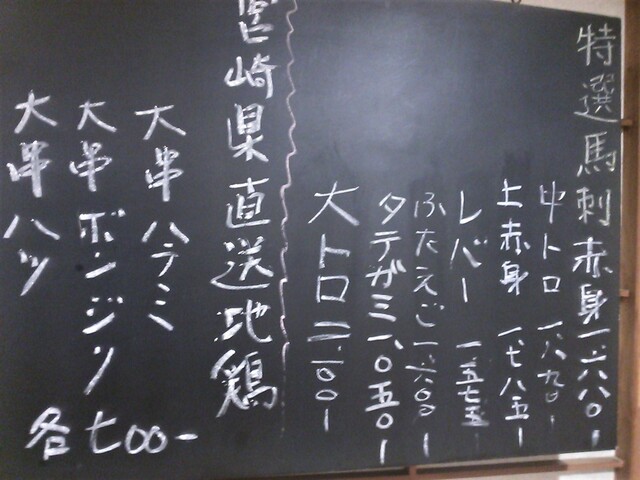 特選馬刺 赤身 一.六八〇-
中トロ 一.八九〇-
上赤身 一.七八五-
レバー 一.五七五-
ふたえご 一.六〇〇-
タテガミ 一.〇五〇-
大トロ 二.一〇〇-
宮崎県直送地鶏
大串 ハラミ
大串 ボンジリ
大串 ハツ
各七00-